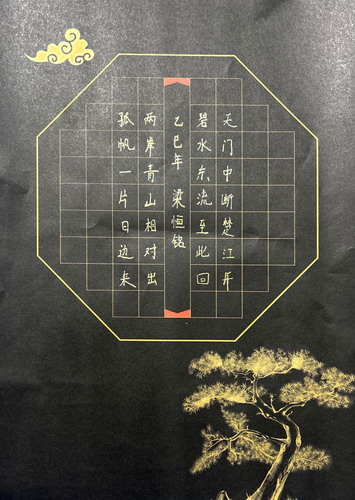 天门中断楚江开
碧水东流至此回
乙巳年 梁恒铭
两岸青山相对出
孤帆一片日边来